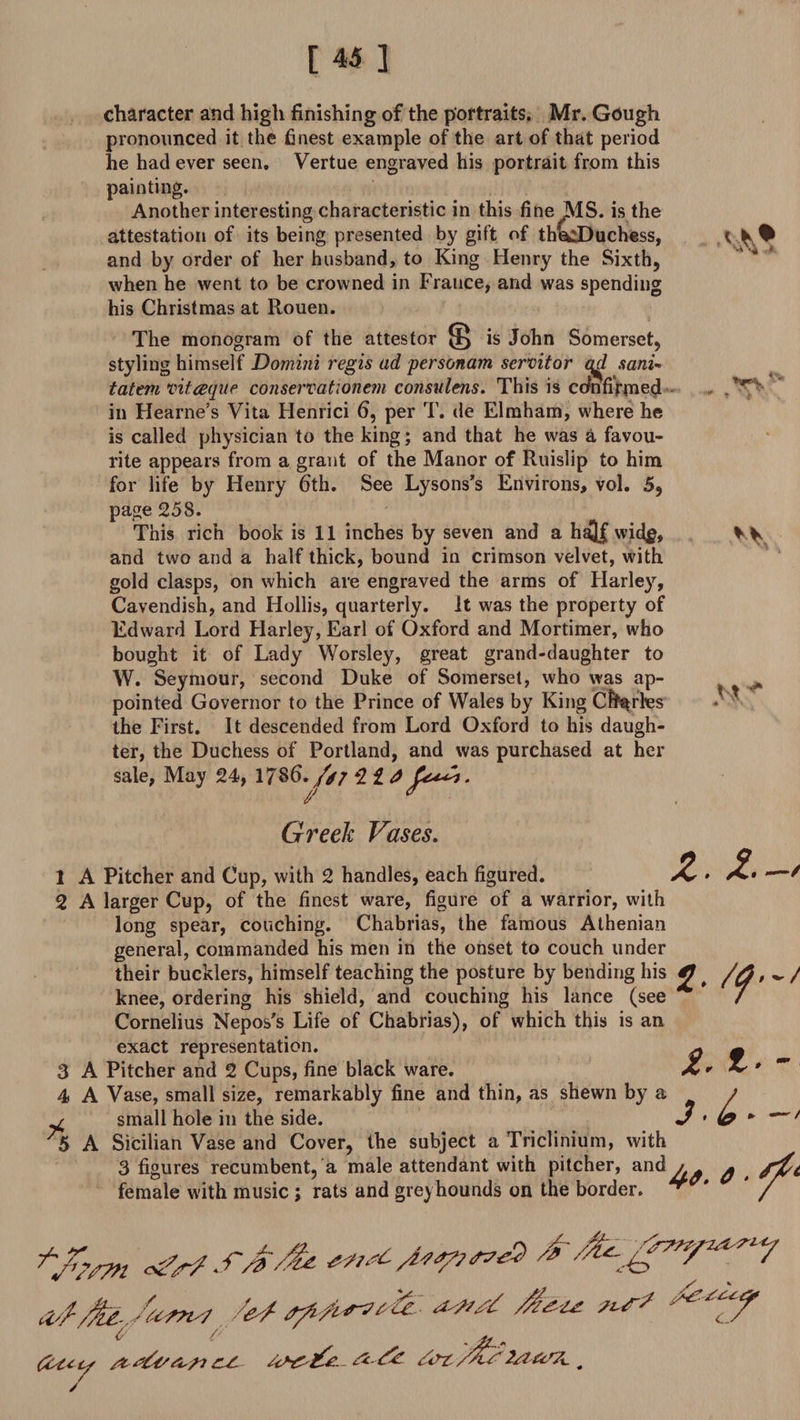 [ 45 ]
character and high finishing of the portraits. Mr. Gough
pronounced it the finest example of the art of that period
he had ever seen. Vertue engraved his portrait from this
painting.
Another interesting characteristic in this fine MS. is the
attestation of its being presented by gift of the Duchess,
and by order of her husband, to King Henry the Sixth,
when he went to be crowned in France, and was spending
his Christmas at Rouen.
The monogram of the attestor is John Somerset,
styling himself Domini regis ad personam servitor ad sani-
tatem vitæque conservationem consulens. This is confirmed
in Hearne's Vita Henrici 6, per T. de Elmham, where he
is called physician to the king; and that he was a favou-
rite appears from a grant of the Manor of Ruislip to him
for life by Henry 6th. See Lysons's Environs, vol. 5,
page 258.
This rich book is 11 inches by seven and a half wide,
and two and a half thick, bound in crimson velvet, with
gold clasps, on which are engraved the arms of Harley,
Cavendish, and Hollis, quarterly. It was the property of
Edward Lord Harley, Earl of Oxford and Mortimer, who
bought it of Lady Worsley, great grand-daughter to
W. Seymour, second Duke of Somerset, who was ap-
pointed Governor to the Prince of Wales by King Charles
the First. It descended from Lord Oxford to his daugh-
ter, the Duchess of Portland, and was purchased at her
sale, May 24, 1786. for 220
Greek Vases.
1 A Pitcher and Cup, with 2 handles, each figured. 2. 2. —
2 A larger Cup, of the finest ware, figure of a warrior, with
long spear, couching. Chabrias, the famous Athenian
general, commanded his men in the onset to couch under
their bucklers, himself teaching the posture by bending his 2. 19. -
knee, ordering his shield, and couching his lance (see
Cornelius Nepos's Life of Chabrias), of which this is an
exact representation.
3 A Pitcher and 2 Cups, fine black ware. 2. 2. -
4 A Vase, small size, remarkably fine and thin, as shewn by a
small hole in the side. 3. 6. —
5 A Sicilian Vase and Cover, the subject a Triclinium, with
3 figures recumbent, a male attendant with pitcher, and
female with music; rats and greyhounds on the border. 40. 0.
From Lot 5 to the end proposed to the company
at the sums set opposite and there not being
any advance were all withdrawn.